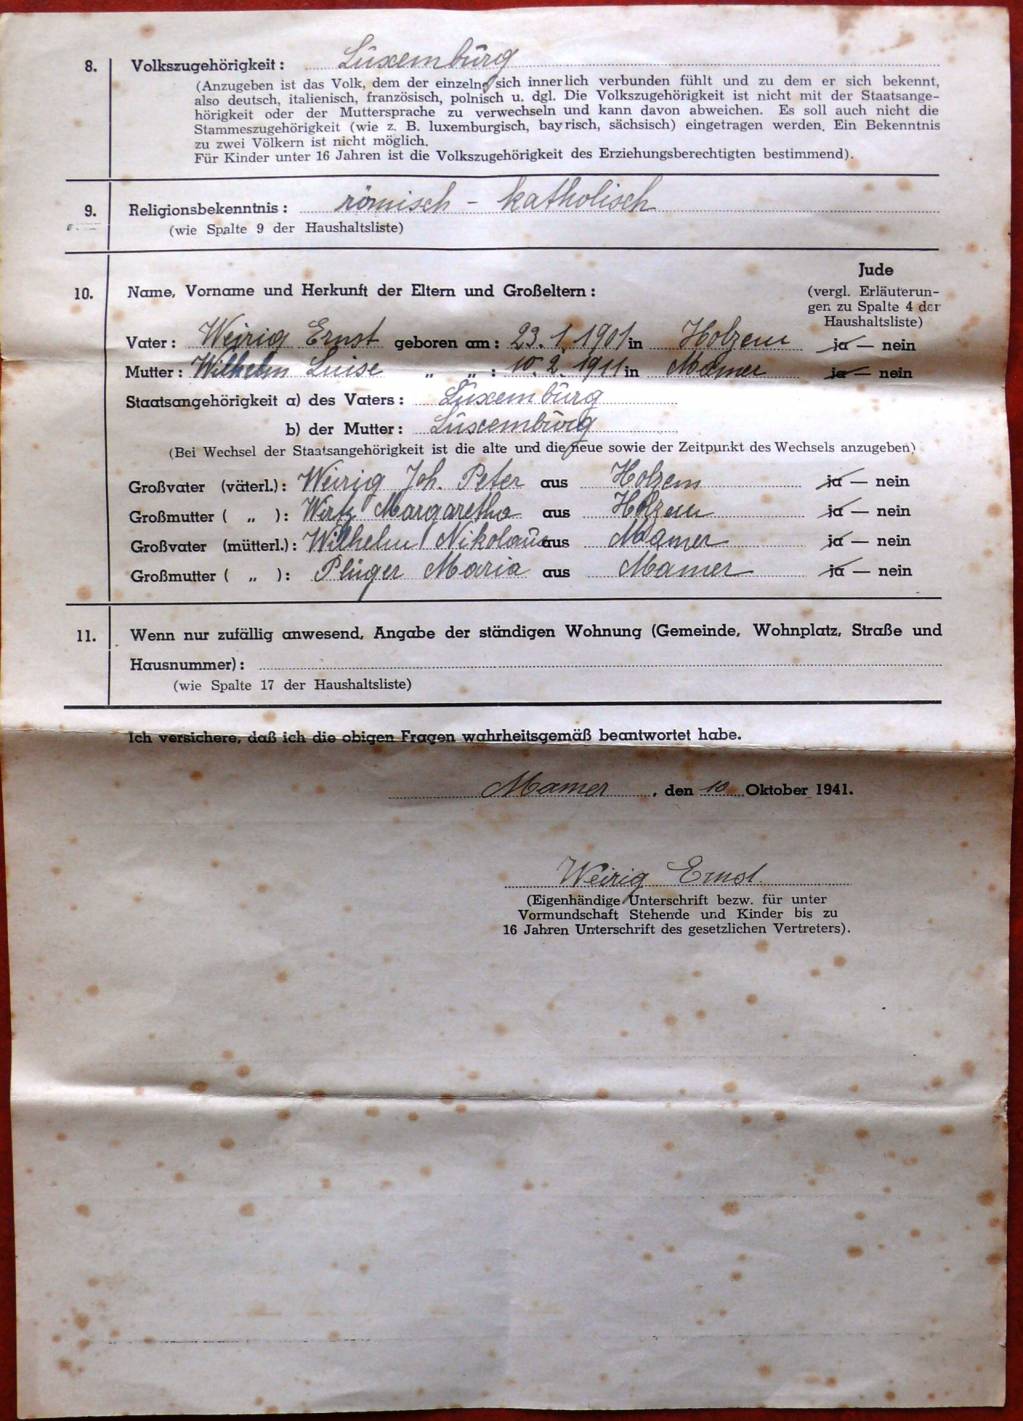 8. Volkszugehörigkeit: Luxemburg
(Anzugeben ist das Volk, dem der einzelne sich innerlich verbunden fühlt und zu dem er sich bekennt,
also deutsch, italienisch, französisch, polnisch u. dgl. Die Volkszugehörigkeit ist nicht mit der Staatsange-
hörigkeit oder der Muttersprache zu verwechseln und kann davon abweichen. Es soll auch nicht die
Stammeszugehörigkeit (wie z. B. luxemburgisch, bayrisch, sächsisch) eingetragen werden. Ein Bekenntnis
zu zwei Völkern ist nicht möglich.
Für Kinder unter 16 Jahren ist die Volkszugehörigkeit des Erziehungsberechtigten bestimmend).
9. Religionsbekenntnis: römisch - katholisch
(wie Spalte 9 der Haushaltsliste)
Jude
10. Name, Vorname und Herkunft der Eltern und Großeltern: (vergl. Erläuterun-
gen zu Spalte 4 der
Haushaltsliste)
Vater: Weirig Ernst geboren am: 23. 1. 1901 in Holzem ja — nein
Mutter: Wilhelm Luise " " : 10. 2. 1911 in Mamer ja — nein
Staatsangehörigkeit a) des Vaters: Luxemburg
b) der Mutter: Luxemburg
(Bei Wechsel der Staatsangehörigkeit ist die alte und die neue sowie der Zeitpunkt des Wechsels anzugeben)
Großvater (väterl.): Weirig Joh. Peter aus Holzem ja — nein
Großmutter ( „ ): Wirtz Margaretha aus Holzem ja — nein
Großvater (mütterl.): Wilhelm Nikolaus aus Mamer ja — nein
Großmutter ( „ ): Plüger Maria aus Mamer ja — nein
11. Wenn nur zufällig anwesend, Angabe der ständigen Wohnung (Gemeinde, Wohnplatz, Straße und
Hausnummer):
(wie Spalte 17 der Haushaltsliste)
Ich versichere, daß ich die obigen Fragen wahrheitsgemäß beantwortet habe.
Mamer, den 10 Oktober 1941.
Weirig Ernst
(Eigenhändige Unterschrift bezw. für unter
Vormundschaft Stehende und Kinder bis zu
16 Jahren Unterschrift des gesetzlichen Vertreters).